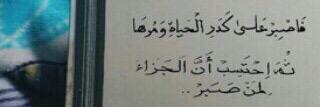 فَاصْبِرْ عَلَىٰ كَدَرِ الْحَيَاةِ وَمُرِّهَا
ثُمَّ احْتَسِبْ أَنَّ الْجَزَاءَ
لِمَنْ صَبَرْ ..